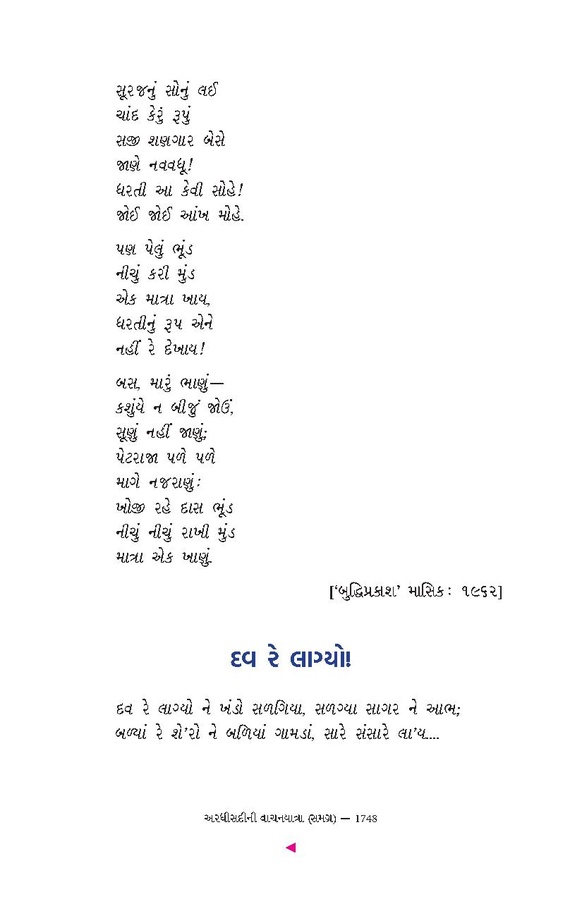 સૂરજનું સોનું લઈ
ચાંદ કેરું રૂપું
સજી શણગાર બેસે
જાણે નવવધૂ!
ધરતી આ કેવી સોહે!
જોઈ જોઈ આંખ મોહે.
પણ પેલું ભૂંડ
નીચું કરી મુંડ
એક માત્રા ખાય,
ધરતીનું રૂપ એને
નહીં રે દેખાય!
બસ, મારું ભાણું—
કશુંયે ન બીજું જોઉં,
સૂણું નહીં જાણું;
પેટરાજા પળે પળે
માગે નજરાણું:
ખોજી રહે દાસ ભૂંડ
નીચું નીચું રાખી મુંડ
માત્રા એક ખાણું.
[‘બુદ્ધિપ્રકાશ’ માસિક: ૧૯૬૨]
દવ રે લાગ્યો!
દવ રે લાગ્યો ને ખંડો સળગિયા, સળગ્યા સાગર ને આભ;
બળ્યાં રે શે’રો ને બળિયાં ગામડાં, સારે સંસારે લા’ય....
અરધીસદીની વાચનયાત્રા (સમગ્ર) — 1748
◀